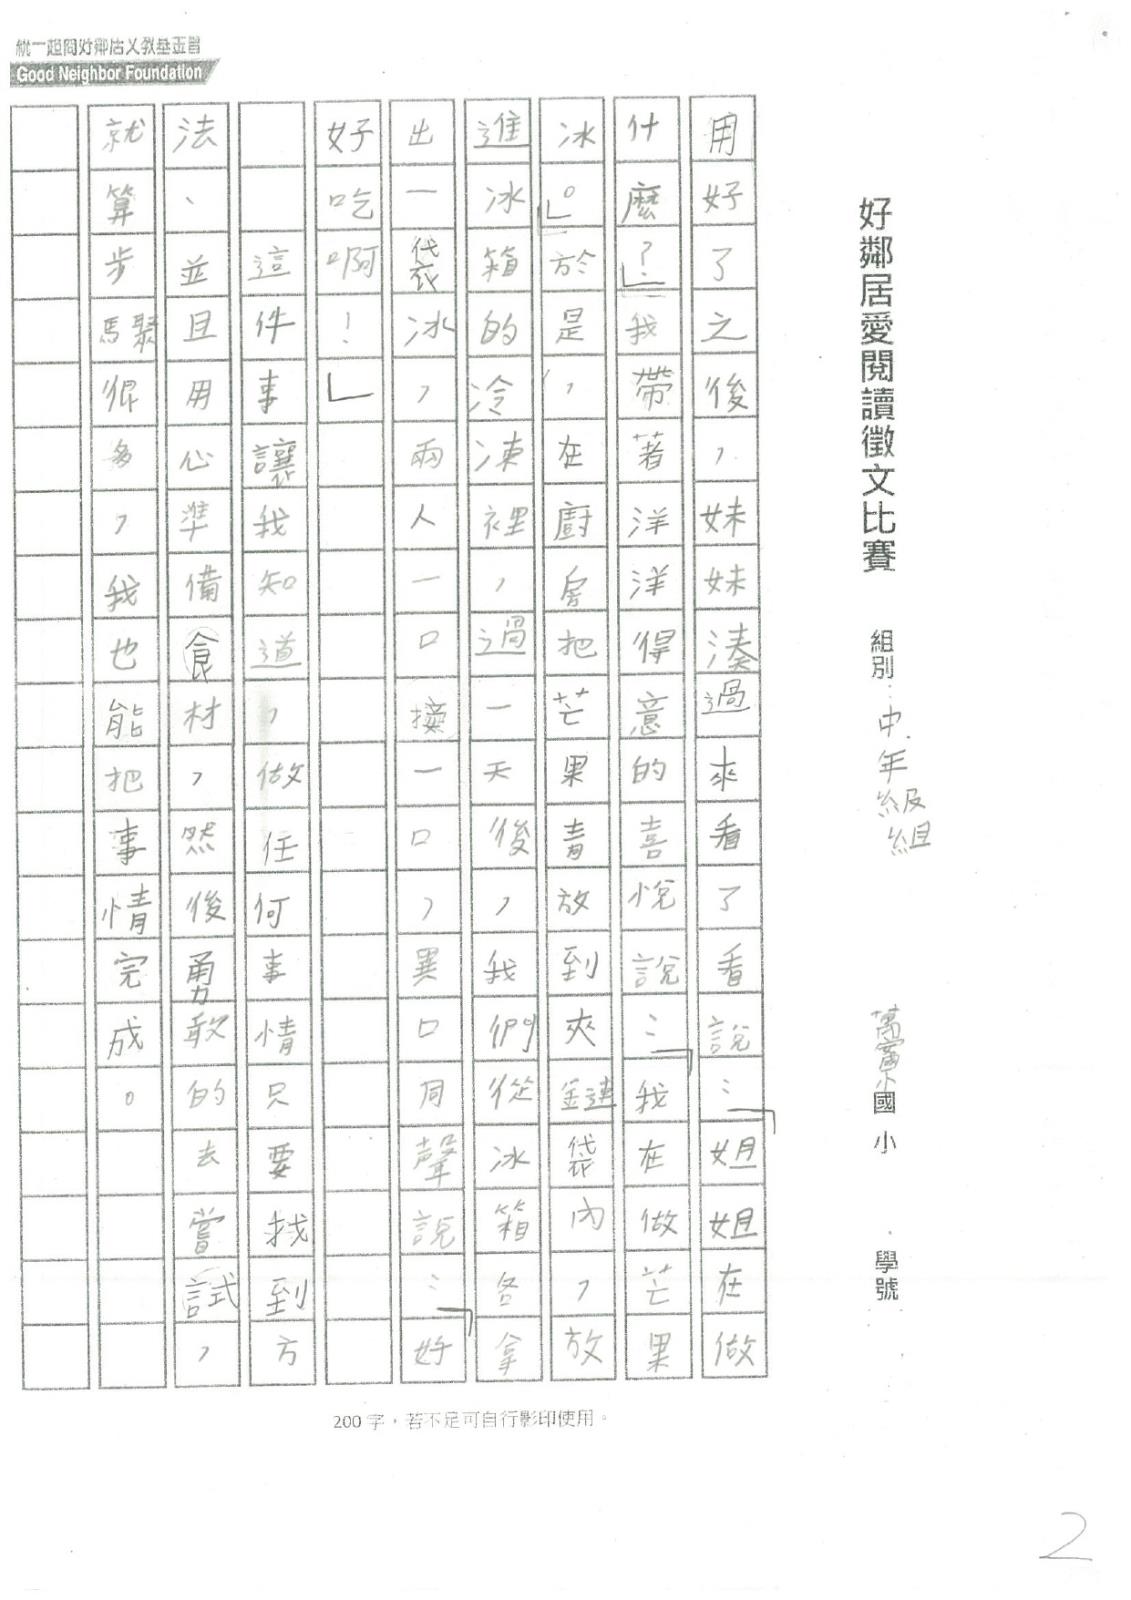 統一超商好鄰居文教基金會
Good Neighbor Foundation
好鄰居愛閱讀徵文比賽 組別：中年級組 萬富國小 學號
用好了之後，妹妹湊過來看了看說：「姐姐在做
什麼？」我帶著洋洋得意的喜悅說：「我在做芒果
冰。」於是，在廚房把芒果青放到夾鏈袋內，放
進冰箱的冷凍裡，過一天後，我們從冰箱各拿
出一袋冰，兩人一口接一口，異口同聲說：「好
好吃啊！」
這件事讓我知道，做任何事情只要找到方
法、並且用心準備食材，然後勇敢的去嘗試，
就算步驟很多，我也能把事情完成。
200字，若不足可自行影印使用。
2